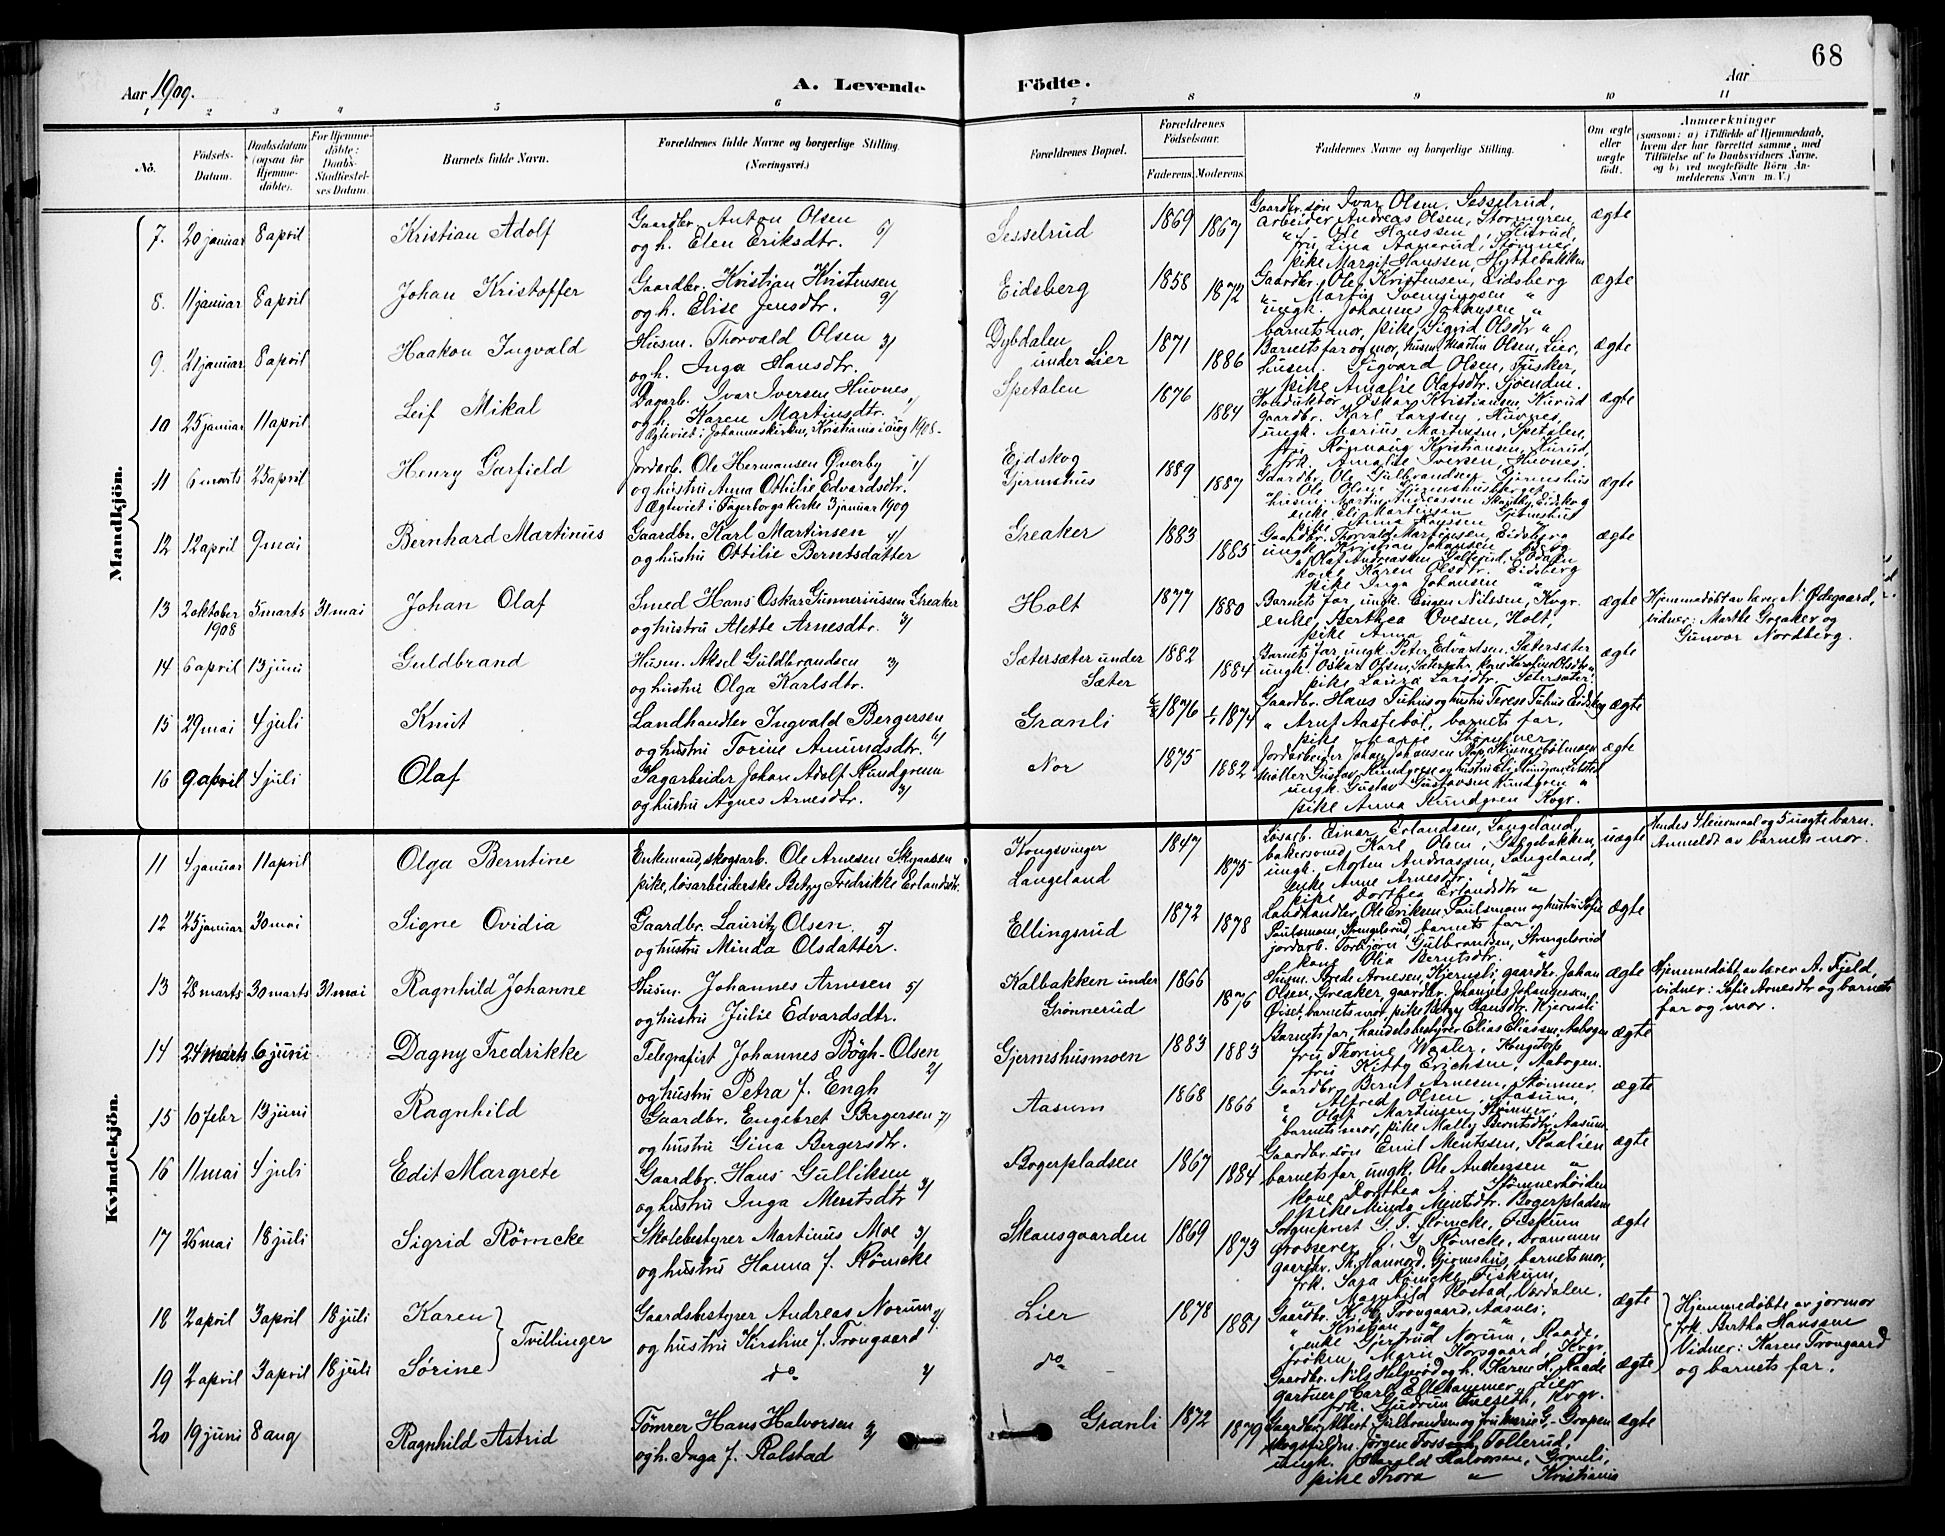 68
Aar 1909.
A. Levende Födte.
Aar
1 2 3 4 5 6 7 8 9 10 11
No.
Födsels-Datum.
Daabsdatum (ogsaa for Hjemme-döbte).
For Hjemme-döbte: Daabs-Stadfæstel-ses Datum.
Barnets fulde Navn.
Forældrenes fulde Navne og borgerlige Stilling. (Næringsvei.)
Forældrenes Bopæl.
Forældrenes Födselsaar.
Faderens. Moderens.
Faddernes Navne og borgerlige Stilling.
Om ægte eller uægte födt.
Anmærkninger
(saasom: a) i Tilfælde af Hjemmedaab, hvem der har forrettet samme, med Tilföielse af to Daabsvidners Navne, og b) ved uægtefödte Börn An-melderens Navn m. V.)
Mandkjön.
7. 20 januar 8 april Kristian Adolf Gaardbr. Anton Olsen og h. Elen Eriksdtr. 6/ Sesselrud 1869 1867 Gaardbr.søn Ivar Olsen, Sesselrud,
arbeider Andreas Olsen, Stormgren,
" Ole Hanssen, Kurud,
fru Lina Aamerud, Stømner,
pike Margit Hanssen, Hyttebakken ægte
8. 11 januar 8 april Johan Kristoffer Gaardbr. Kristian Kristensen og h. Elise Jensdtr. 9/ Eidsberg 1858 1872 Gaardbr. Ole Kristensen, Eidsberg
" Martin Svenningsen "
ungk. Johannes Johansen "
barnets mor, pike Sigrid Olsdtr " ægte
9. 21 januar 8 april Haakon Ingvald Husm. Thorvald Olsen og h. Inga Hansdtr. 3/ Dybdalen under Lier 1871 1886 Barnets far og mor, husm. Martin Olsen, Lier,
husm. Sigvard Olsen, Fjusker,
pike Amalie Olafsdtr. Sjøenden. ægte
10 25 januar 11 april Leif Mikal Dagarb. Ivar Iversen Huvnes og h. Karen Martinsdtr. 1/
Ægteviet i Johanneskirken, Kristiania i aug 1908. Spetalen 1876 1884 Konduktør Oskar Kristiansen, Kurud
gaardbr. Karl Larssen, Huvnes
ungk. Marius Martinsen, Spetalen,
fru Rønnaug Kristiansen, Kurud,
frk. Amalie Iversen, Huvnes. ægte
11 6 marts 25 april Henry Garfield Jordarb. Ole Hermansen Øverby og hustru Anna Othilie Edvardsdtr. 1/
Ægteviet i Fagerborgs kirke 3 januar 1909 Eidskog Gjermshus 1889 1887 Gaardbr. Ole Gulbrandsen, Gjermshus
" Ole Olsen
husm. Martin Andreassen
enke Eli Martinsen, Gjermshus
pike Anna ægte
12 12 april 9 mai Bernhard Martinus Gaardbr. Karl Martinsen og hustru Ottilie Berntsdatter 4/ Greaker 1883 1885 Gaardbr. Thorvald Martinsen, Eidsberg
ungk. Kristian Johansen
" Olaf Andreassen
kone Karen Olsdtr. Eidsberg
pike Inga Johansen " ægte
13 2 oktober 1908 5 marts 31 mai Johan Olaf Smed Hans Oskar Gunneriussen Greaker og hustru Alette Arnesdtr. 3/ Holt 1877 1880 Barnets far, ungk. Eugen Nilssen, Kvgr.
enke Berthea Ovesen, Holt,
pike Anna " " ægte Hjemmedøbt av lærer N. Ødegaard,
vidner: Marthe Greaker og
Gunvor Nordberg.
14 6 april 13 juni Guldbrand Husm. Aksel Guldbrandsen og hustru Olga Karlsdtr. 3/ Sætersæter under Sæter 1882 1884 Barnets far, ungk. Peter Edvardsen, Sætersæter
ungk. Oskar Olsen, Sætersæter, kone Karoline Olsdtr "
pike Laura Larsdtr. Sætersæter. ægte
15 29 mai 4 juli Knut Landhandler Ingvald Bergersen og hustru Torine Amundsdtr. 6/ Granli 1876 1874 Gaardbr. Hans Tuhus og hustru Terese Tuhus Eidskog
" Arnt Aastebøl, barnets far,
pike Marie Stømner, ægte
16 9 april 4 juli Olaf Sagarbeider Johan Adolf Rundgreen og hustru Agnes Arnesdtr. 3/ Nor 1875 1882 Jordarbeider Johan Johansen
møller Gustav Rundgreen og hustru Eli Rundgren
ungk. Gustav Gustavsen Rundgren "
pike Anna Rundgren Kvgr. ægte
Kvindekjön.
11 4 januar 11 april Olga Berntine Enkemand, skogsarb. Ole Arnesen Skyaasen
pike, løsarbeiderske Betzy Fredrikke Erlandsdtr. Kongsvinger
Langeland 1847 1875 Løsarb. Einar Erlandsen, Langeland,
bakersvend Karl Olsen, Galgebakken,
ungk. Morten Andreassen, Langeland,
enke Anne Arnesdtr. "
pike Dorthea Erlandsdtr " uægte Hendes 5 leiermaal og 5 uægte barn.
Anmeldt av barnets mor.
12 25 januar 30 mai Signe Ovidia Gaardbr. Lauritz Olsen og hustru Minda Olsdatter. 5/ Ellingsrud 1872 1878 Landhandler Ole Eriksen Paulsmoen og hustru Sofie
Paulsmoen, Strengelsrud, barnets far,
jordarb. Torbjørn Gulbrandsen, Strengelsrud
kone Olia Berntsdtr. " ægte
13 28 marts 30 marts 31 mai Ragnhild Johanne Husm. Johannes Arnesen og hustru Julie Edvardsdtr. 5/ Kalbakken under Grønnerud 1866 1876 Husm. Arnesen, Kjernsli, gaardbr. Johan
Olsen, Greaker, gaardbr. Johannes Johannessen,
Øiset, barnets mor, pike Betzy Hansdtr. Kjernsli ægte Hjemmedøbt av lærer A. Fjeld,
vidner: Sofie Arnesdtr og barnets
far og mor.
14 24 marts 6 juni Dagny Fredrikke Telegrafist Johannes Bøgh-Olsen og hustru Petra f. Engh 2/ Gjermshusmoen 1883 1883 Barnets far, handelsbestyrer Elias Eliassen Aabogen
fru Thorine Waaler,
fru Kitty Erichsen, Aabogen. ægte
15 10 febr 13 juni Ragnhild Gaardbr. Engebret Bergersen og hustru Gina Bergersdtr. 7/ Aasum 1868 1866 Gaardbr. Bernt Arnesen, Stømner
" Alfred Olsen, Aasum,
" Olaf Martinsen, Stømner,
barnets mor, pike Mally Berntsdtr, Aasum. ægte
16 11 mai 4 juli Edit Margrete Gaardbr. Hans Gulliksen og hustru Inga Mentsdtr 3/ Bogerpladsen 1867 1884 Gaardbr.søn Emil Mentsen, Raalien
barnets far, ungk. Ole Andersen "
kone Dorthea A. Stømnerhøiden
pike Minda Mentsdtr. Bogerpladsen ægte
17 26 mai 18 juli Sigrid Rømcke Skolebestyrer Martinus Moe og hustru Hanna f. Rømcke 3/ Skansgaarden 1869 1873 Sogneprest G. F. Rømcke, Fiskum
Grosserer O. G. Rømcke, Drammen
gaardbr. Th. Mannerud, Gjermshus, barnets mor,
frk. Saga Rømcke, Fiskum,
" Magnhild Rostad, Værdalen. ægte
18 2 april 3 april 18 juli Karen } Tvillinger Gaardsbestyrer Andreas Norum og hustru Kirstine f. Trongaard 2/ Lier 1878 1881 Gaardbr. K. G. Trongaard, Aasnes,
" Kristian " "
enke Gjertrud Norum, Raade,
frøken Marie Korsgaard, Kvgr. ægte } Hjemmedøbte av jormor
frk. Bertha Hanssen
Vidner: Karen Trongaard
og barnets far.
19 2 april 3 april 18 juli Sørine do 2/ do Gaardbr. Nils Helgerød og h. Karen H. Raade
gartner Carl Ellehammer, Lier
frk. Gudrun Kvgr. ægte
20 19 juni 8 aug Ragnhild Astrid Tømrer Hans Halvorsen og h. Inga f. Ralstad 3/ Granli 1872 1879 Gaardbr. Albert Gulbrandsen og fru Marie G. Gropen
skogsfuldm. Jørgen Fossech, Tollerud,
ungk. Harald Halvorsen, Granli,
pike Thora " Kristiania ægte